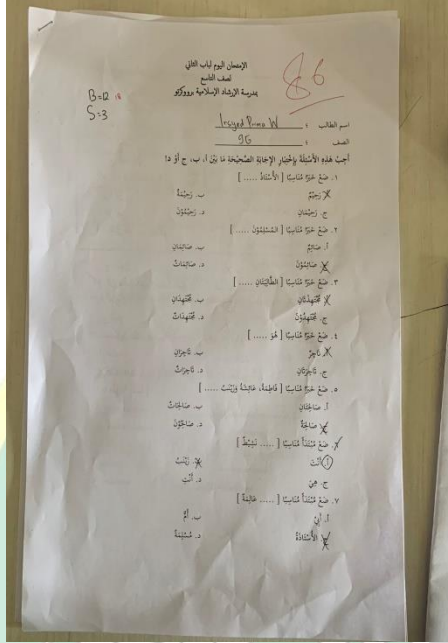 86
الإمتحان اليوم لباب الثاني
لصف التاسع
بمدرسة الإرشاد الإسلامية برووكرتو
B=12 18
S=3
اسم الطالب : Irsyad Prima W
الصف : 9G
أَجِبْ هَذِهِ الأَسْئِلَةَ بِاخْتِيَارِ الإِجَابَةِ الصَّحِيْحَةِ مَا بَيْنَ أ، ب، ج أَوْ د!
١. ضَعْ خَبَرًا مُنَاسِبًا [ الأُسْتَاذُ ..... ]
أ. رَحِيْمٌ ب. رَحِيْمَةٌ
ج. رَحِيْمَانِ د. رَحِيْمُوْنَ
٢. ضَعْ خَبَرًا مُنَاسِبًا [ المُسْلِمُوْنَ ..... ]
أ. صَائِمٌ ب. صَائِمَانِ
ج. صَائِمُوْنَ د. صَائِمَاتٌ
٣. ضَعْ خَبَرًا مُنَاسِبًا [ الطَّالِبَتَانِ ..... ]
أ. مُجْتَهِدَتَانِ ب. مُجْتَهِدَانِ
ج. مُجْتَهِدُوْنَ د. مُجْتَهِدَاتٌ
٤. ضَعْ خَبَرًا مُنَاسِبًا [ هُوَ ..... ]
أ. تَاجِرٌ ب. تَاجِرَانِ
ج. تَاجِرَتَانِ د. تَاجِرَاتٌ
٥. ضَعْ خَبَرًا مُنَاسِبًا [ فَاطِمَةُ، عَائِشَةُ وَزَيْنَبُ ..... ]
أ. صَالِحَتَانِ ب. صَالِحَاتٌ
ج. صَالِحَةٌ د. صَالِحُوْنَ
٦. ضَعْ مُبْتَدَأً مُنَاسِبًا [ ..... نَشِيْطٌ ]
أ. أَنْتَ ب. زَيْنَبُ
ج. هِيَ د. أَنْتِ
٧. ضَعْ مُبْتَدَأً مُنَاسِبًا [ ..... عَالِمَةٌ ]
أ. أَبِيْ ب. أُمٌّ
ج. الأُسْتَاذَةُ د. مُسْلِمَةٌ